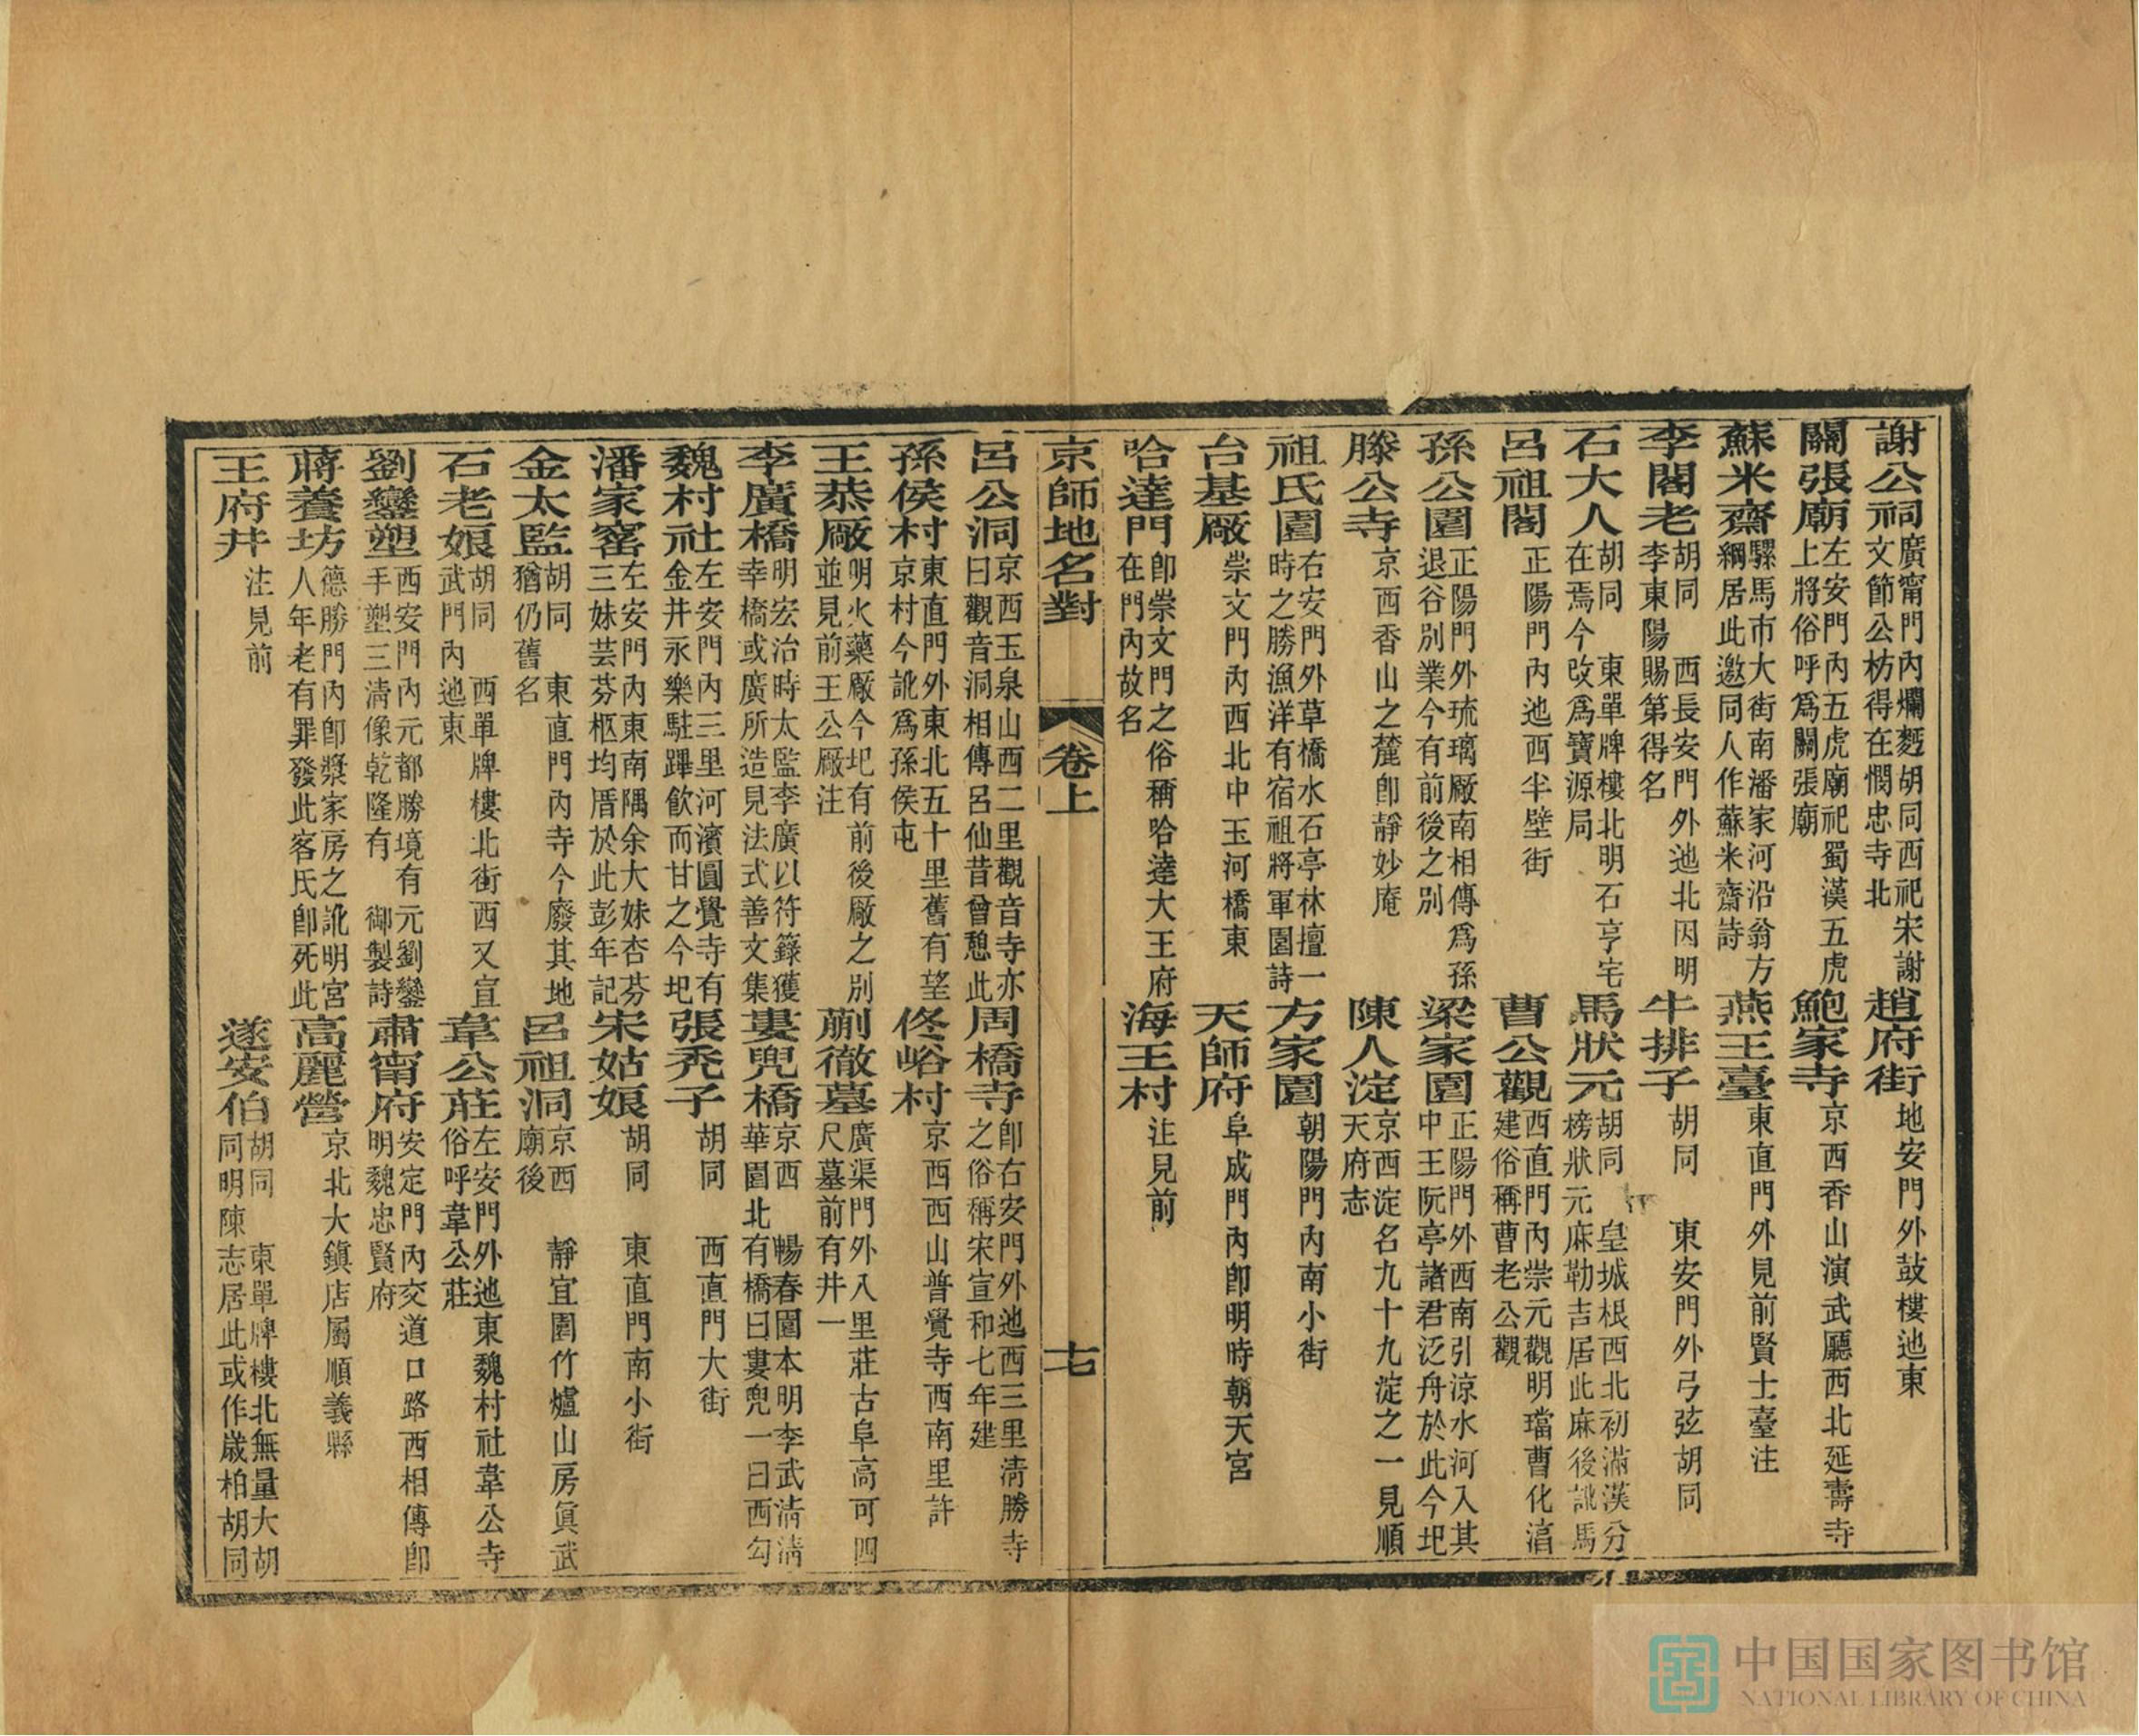 謝公祠廣甯門內爛麪胡同西祀宋謝文節公枋得在憫忠寺北 趙府街地安門外鼓樓迆東
關張廟左安門內五虎廟祀蜀漢五虎上將俗呼爲關張廟 鮑家寺京西香山演武廳西北延壽寺
蘇米齋騾馬市大街南潘家河沿翁方綱居此邀同人作蘇米齋詩 燕王臺東直門外見前賢士臺注
李閣老胡同 西長安門外迆北因明李東陽賜第得名 牛排子胡同 東安門外弓弦胡同
石大人胡同 東單牌樓北明石亨宅在焉今改爲寶源局 馬狀元胡同 皇城根西北初滿漢分榜狀元麻勒吉居此麻後訛馬
呂祖閣正陽門內迆西半壁街 曹公觀西直門內崇元觀明璫曹化淳建俗稱曹老公觀
孫公園正陽門外琉璃厰南相傳爲孫退谷別業今有前後之別 梁家園正陽門外西南引涼水河入其中王阮亭諸君泛舟於此今圯
滕公寺京西香山之麓卽靜妙庵 陳人淀京西淀名九十九淀之一見順天府志
祖氏園右安門外草橋水石亭林擅一時之勝漁洋有宿祖將軍園詩 方家園朝陽門內南小街
台基厰崇文門內西北中玉河橋東 天師府阜成門內卽明時朝天宮
哈達門卽崇文門之俗稱哈達大王府在門內故名 海王村注見前
京師地名對 卷上 十七
呂公洞京西玉泉山西二里觀音寺亦曰觀音洞相傳呂仙昔曾憩此 周橋寺卽右安門外迆西三里淸勝寺之俗稱宋宣和七年建
孫侯村東直門外東北五十里舊有望京村今訛爲孫侯屯 佟峪村京西西山普覺寺西南里許
王恭厰明火藥厰今圯有前後厰之別並見前王公厰注 蒯徹墓廣渠門外入里莊古阜高可四尺墓前有井一
李廣橋明宏治時太監李廣以符籙獲幸橋或廣所造見法式善文集 婁兜橋京西 暢春園本明李武淸淸華園北有橋曰婁兜一曰西勾
魏村社左安門內三里河濱圓覺寺有金井永樂駐蹕飮而甘之今圯 張禿子胡同 西直門大街
潘家窰左安門內東南隅余大妹杏芬三妹芸芬柩均厝於此彭年記 宋姑娘胡同 東直門南小街
金太監胡同 東直門內寺今廢其地猶仍舊名 呂祖洞京西 靜宜園竹爐山房眞武廟後
石老娘胡同 西單牌樓北街西又宣武門內迆東 韋公莊左安門外迆東魏村社韋公寺俗呼韋公莊
劉鑾塑西安門內元都勝境有元劉鑾手塑三淸像乾隆有 御製詩 肅甯府安定門內交道口路西相傳卽明魏忠賢府
蔣養坊德勝門內卽漿家房之訛明宮人年老有罪發此客氏卽死此 高麗營京北大鎭店屬順義縣
王府井注見前 遂安伯胡同 東單牌樓北無量大胡同明陳志居此或作歲柏胡同
中国国家图书馆
NATIONAL LIBRARY OF CHINA